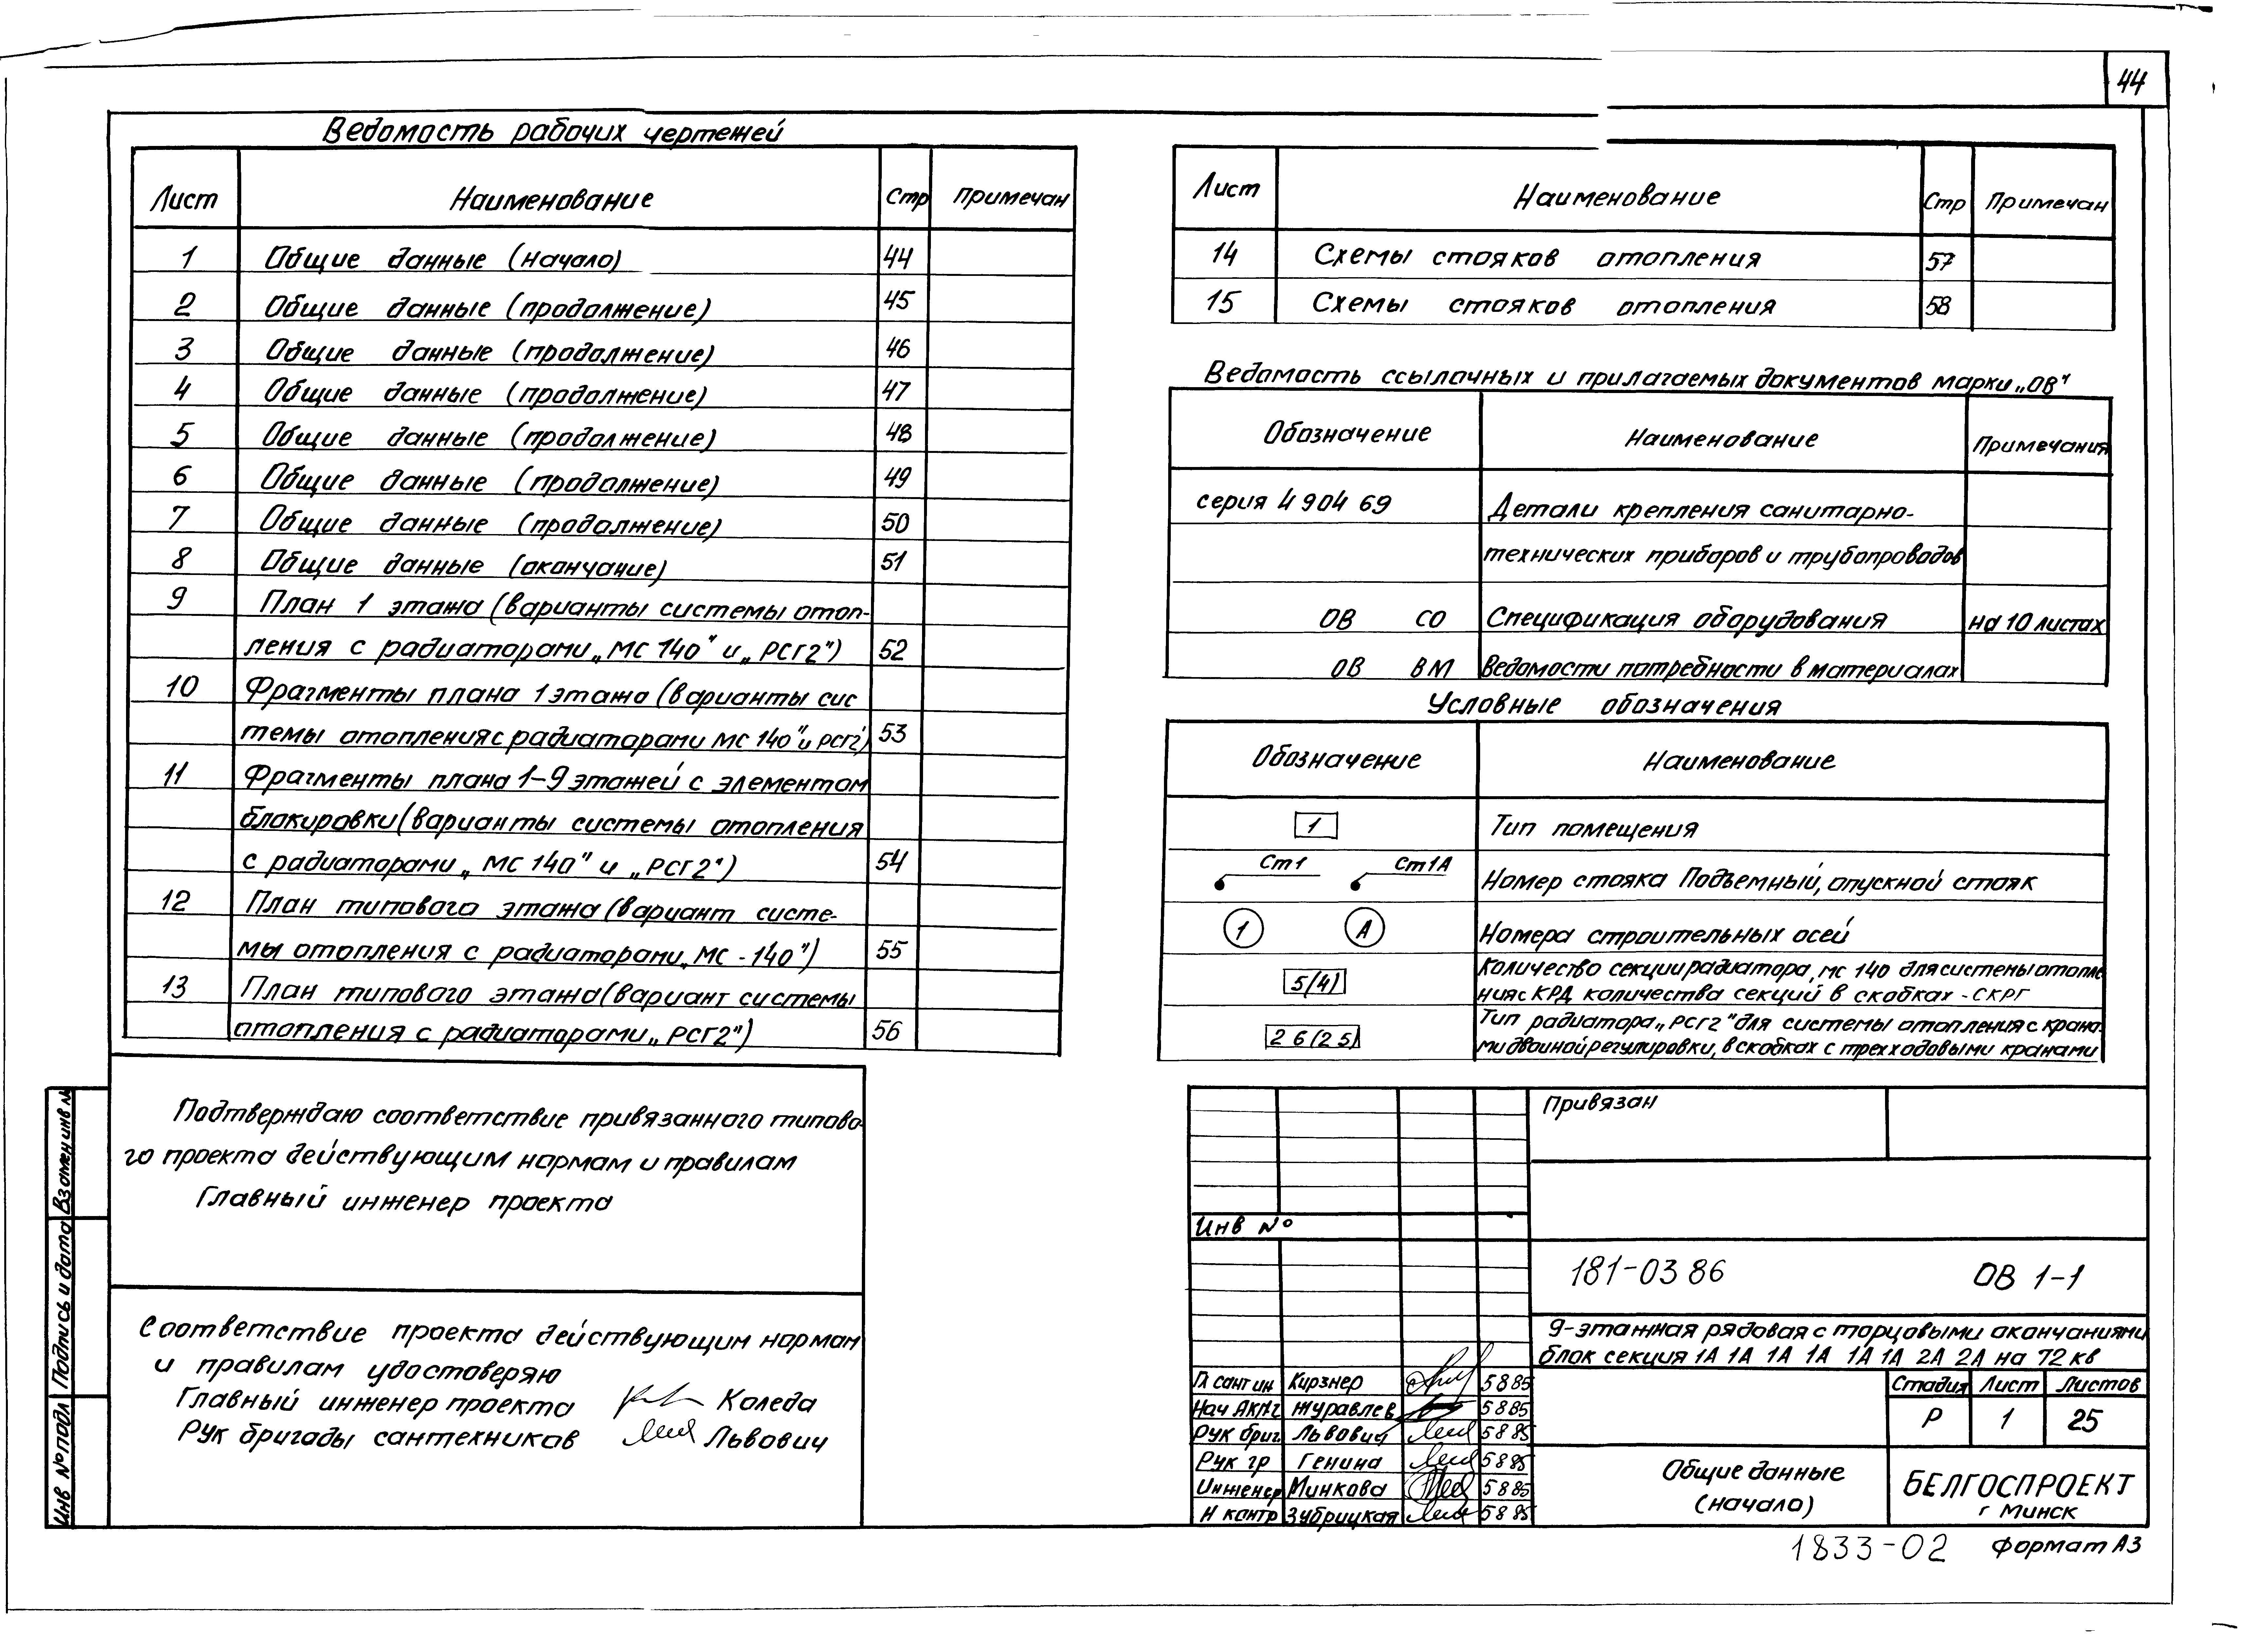 44
Ведомость рабочих чертежей
Лист Наименование Стр Примечан
1 Общие данные (начало) 44
2 Общие данные (продолжение) 45
3 Общие данные (продолжение) 46
4 Общие данные (продолжение) 47
5 Общие данные (продолжение) 48
6 Общие данные (продолжение) 49
7 Общие данные (продолжение) 50
8 Общие данные (окончание) 51
9 План 1 этажа (варианты системы отоп-
ления с радиаторами „МС 140" и „РСГ2") 52
10 Фрагменты плана 1 этажа (варианты сис
темы отопления с радиаторами МС 140" и РСГ2') 53
11 Фрагменты плана 1-9 этажей с элементом
блокировки (варианты системы отопления
с радиаторами „МС 140" и „РСГ2") 54
12 План типового этажа (вариант систе-
мы отопления с радиаторами „МС-140") 55
13 План типового этажа (вариант системы
отопления с радиаторами „РСГ2") 56
Лист Наименование Стр Примечан
14 Схемы стояков отопления 57
15 Схемы стояков отопления 58
Ведомость ссылочных и прилагаемых документов марки „ОВ"
Обозначение Наименование Примечания
серия 4 904 69 Детали крепления санитарно-
технических приборов и трубопроводов
ОВ СО Спецификация оборудования на 10 листах
ОВ ВМ Ведомости потребности в материалах
Условные обозначения
Обозначение Наименование
1 Тип помещения
Ст1 Ст1А Номер стояка Подъемный, опускной стояк
1 А Номера строительных осей
5(4) Количество секции радиатора, МС 140 для системы отопле
ния с КРД количества секций в скобках - СКРГ
26(25) Тип радиатора „РСГ2" для системы отопления с крана-
ми двойной регулировки, в скобках с трехходовыми кранами
Подтверждаю соответствие привязанного типово-
го проекта действующим нормам и правилам
Главный инженер проекта
Соответствие проекта действующим нормам
и правилам удостоверяю
Главный инженер проекта Коледа
Рук бригады сантехников Львович
Взамен инв №
Подпись и дата
Инв № подл
Привязан
Инв №
181-03 86 ОВ 1-1
9-этажная рядовая с торцовыми окончаниями
блок секция 1А 1А 1А 1А 1А 1А 2А 2А на 72 кв
Гл сант ин Кирзнер 5 8 85
Нач АКМ2 Журавлев 5 8 85
Рук бриг Львович 5 8 85
Рук гр Генина 5 8 85
Инженер Минкова 5 8 85
Н контр Зубрицкая 5 8 85
Стадия Лист Листов
Р 1 25
Общие данные
(начало)
БЕЛГОСПРОЕКТ
г Минск
1833-02 Формат А3